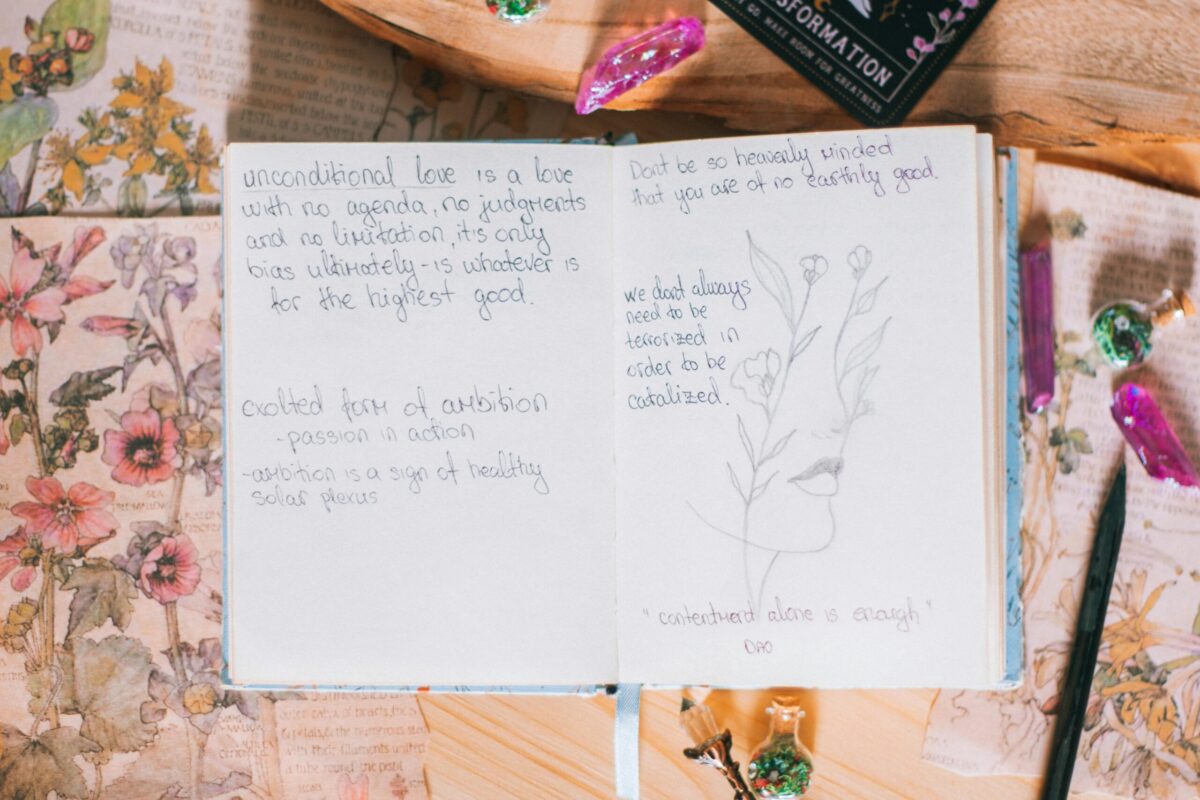 unconditional love is a love
with no agenda, no judgments
and no limitation, it's only
bias ultimately - is whatever is
for the highest good.
exolted form of ambition
- passion in action
- ambition is a sign of healthy
solar plexus
Dont be so heavenly minded
that you are of no earthly good.
we dont always
need to be
terrorized in
order to be
catalized.
"contentment alone is enough"
DAO
TRANSFORMATION
GO. MAKE ROOM FOR GREATNESS
with their filaments united
a tube round the pistil